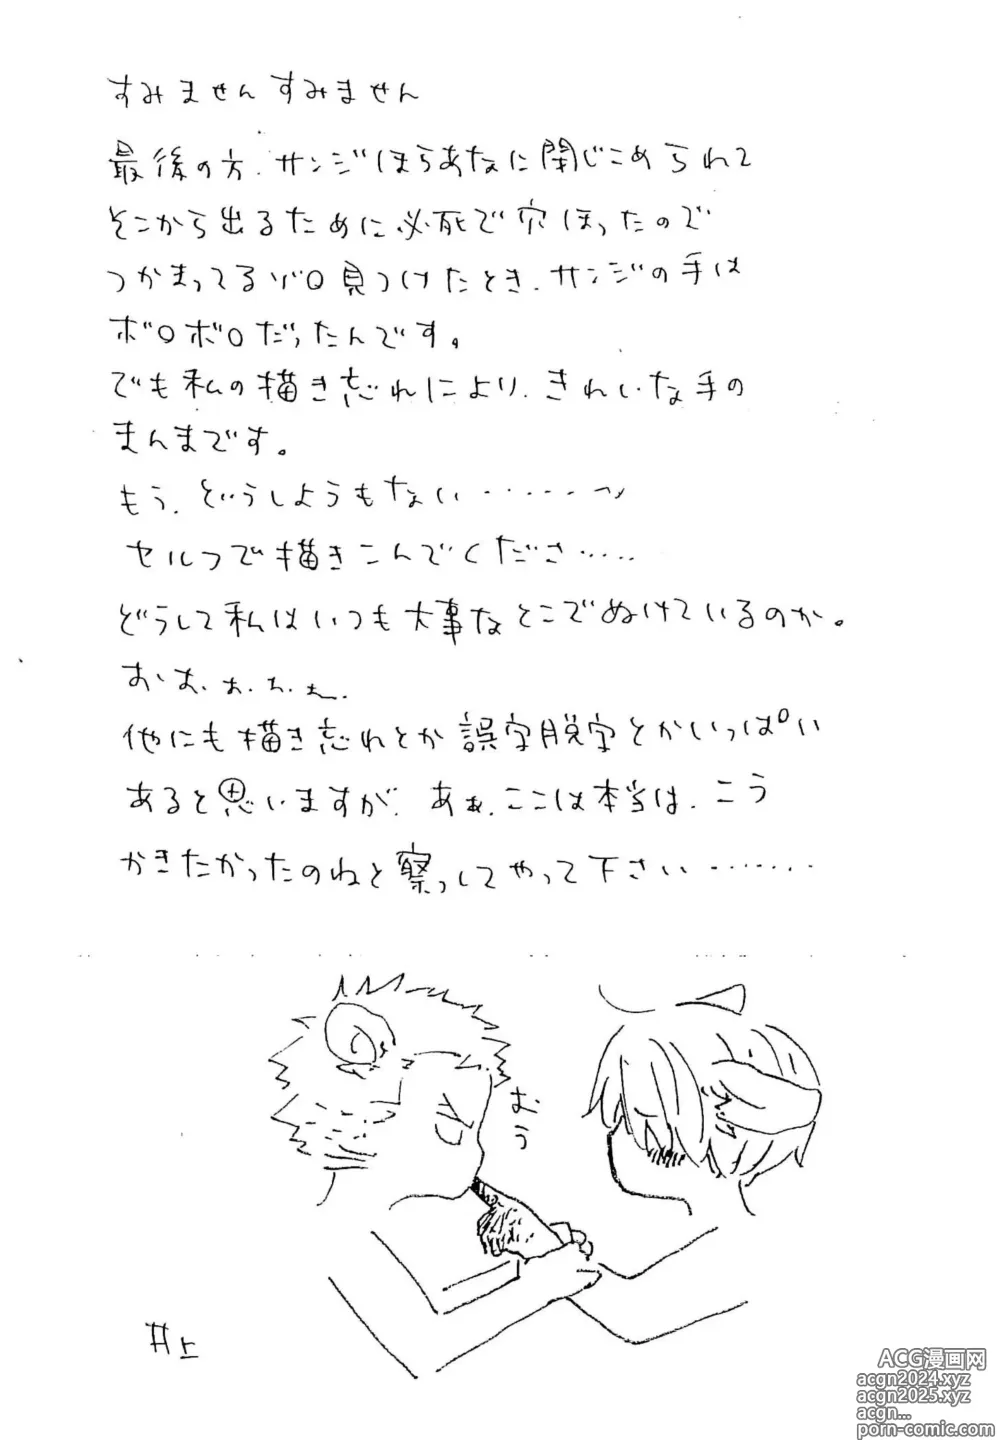 すみませんすみません
最後の方、サンジほらあなに閉じこめられて
そこから出るために必死で穴ほったので
つかまってるゾロ見つけたとき、サンジの手は
ボロボロだったんです。
でも私の描き忘れにより、きれいな手の
まんまです。
もう、どうしようもない・・・・・・
セルフで描きこんでくださ・・・・・
どうして私はいつも大事なとこでぬけているのか。
他にも描き忘れとか誤字脱字とかいっぱい
あると思いますが、あぁ、ここは本当は、こう
かきたかったのねと察してやって下さい・・・・・・・
おう
井上
ACG漫画网
acgn2024.xyz
acgn2025.xyz
acgn...
porn-comic.com